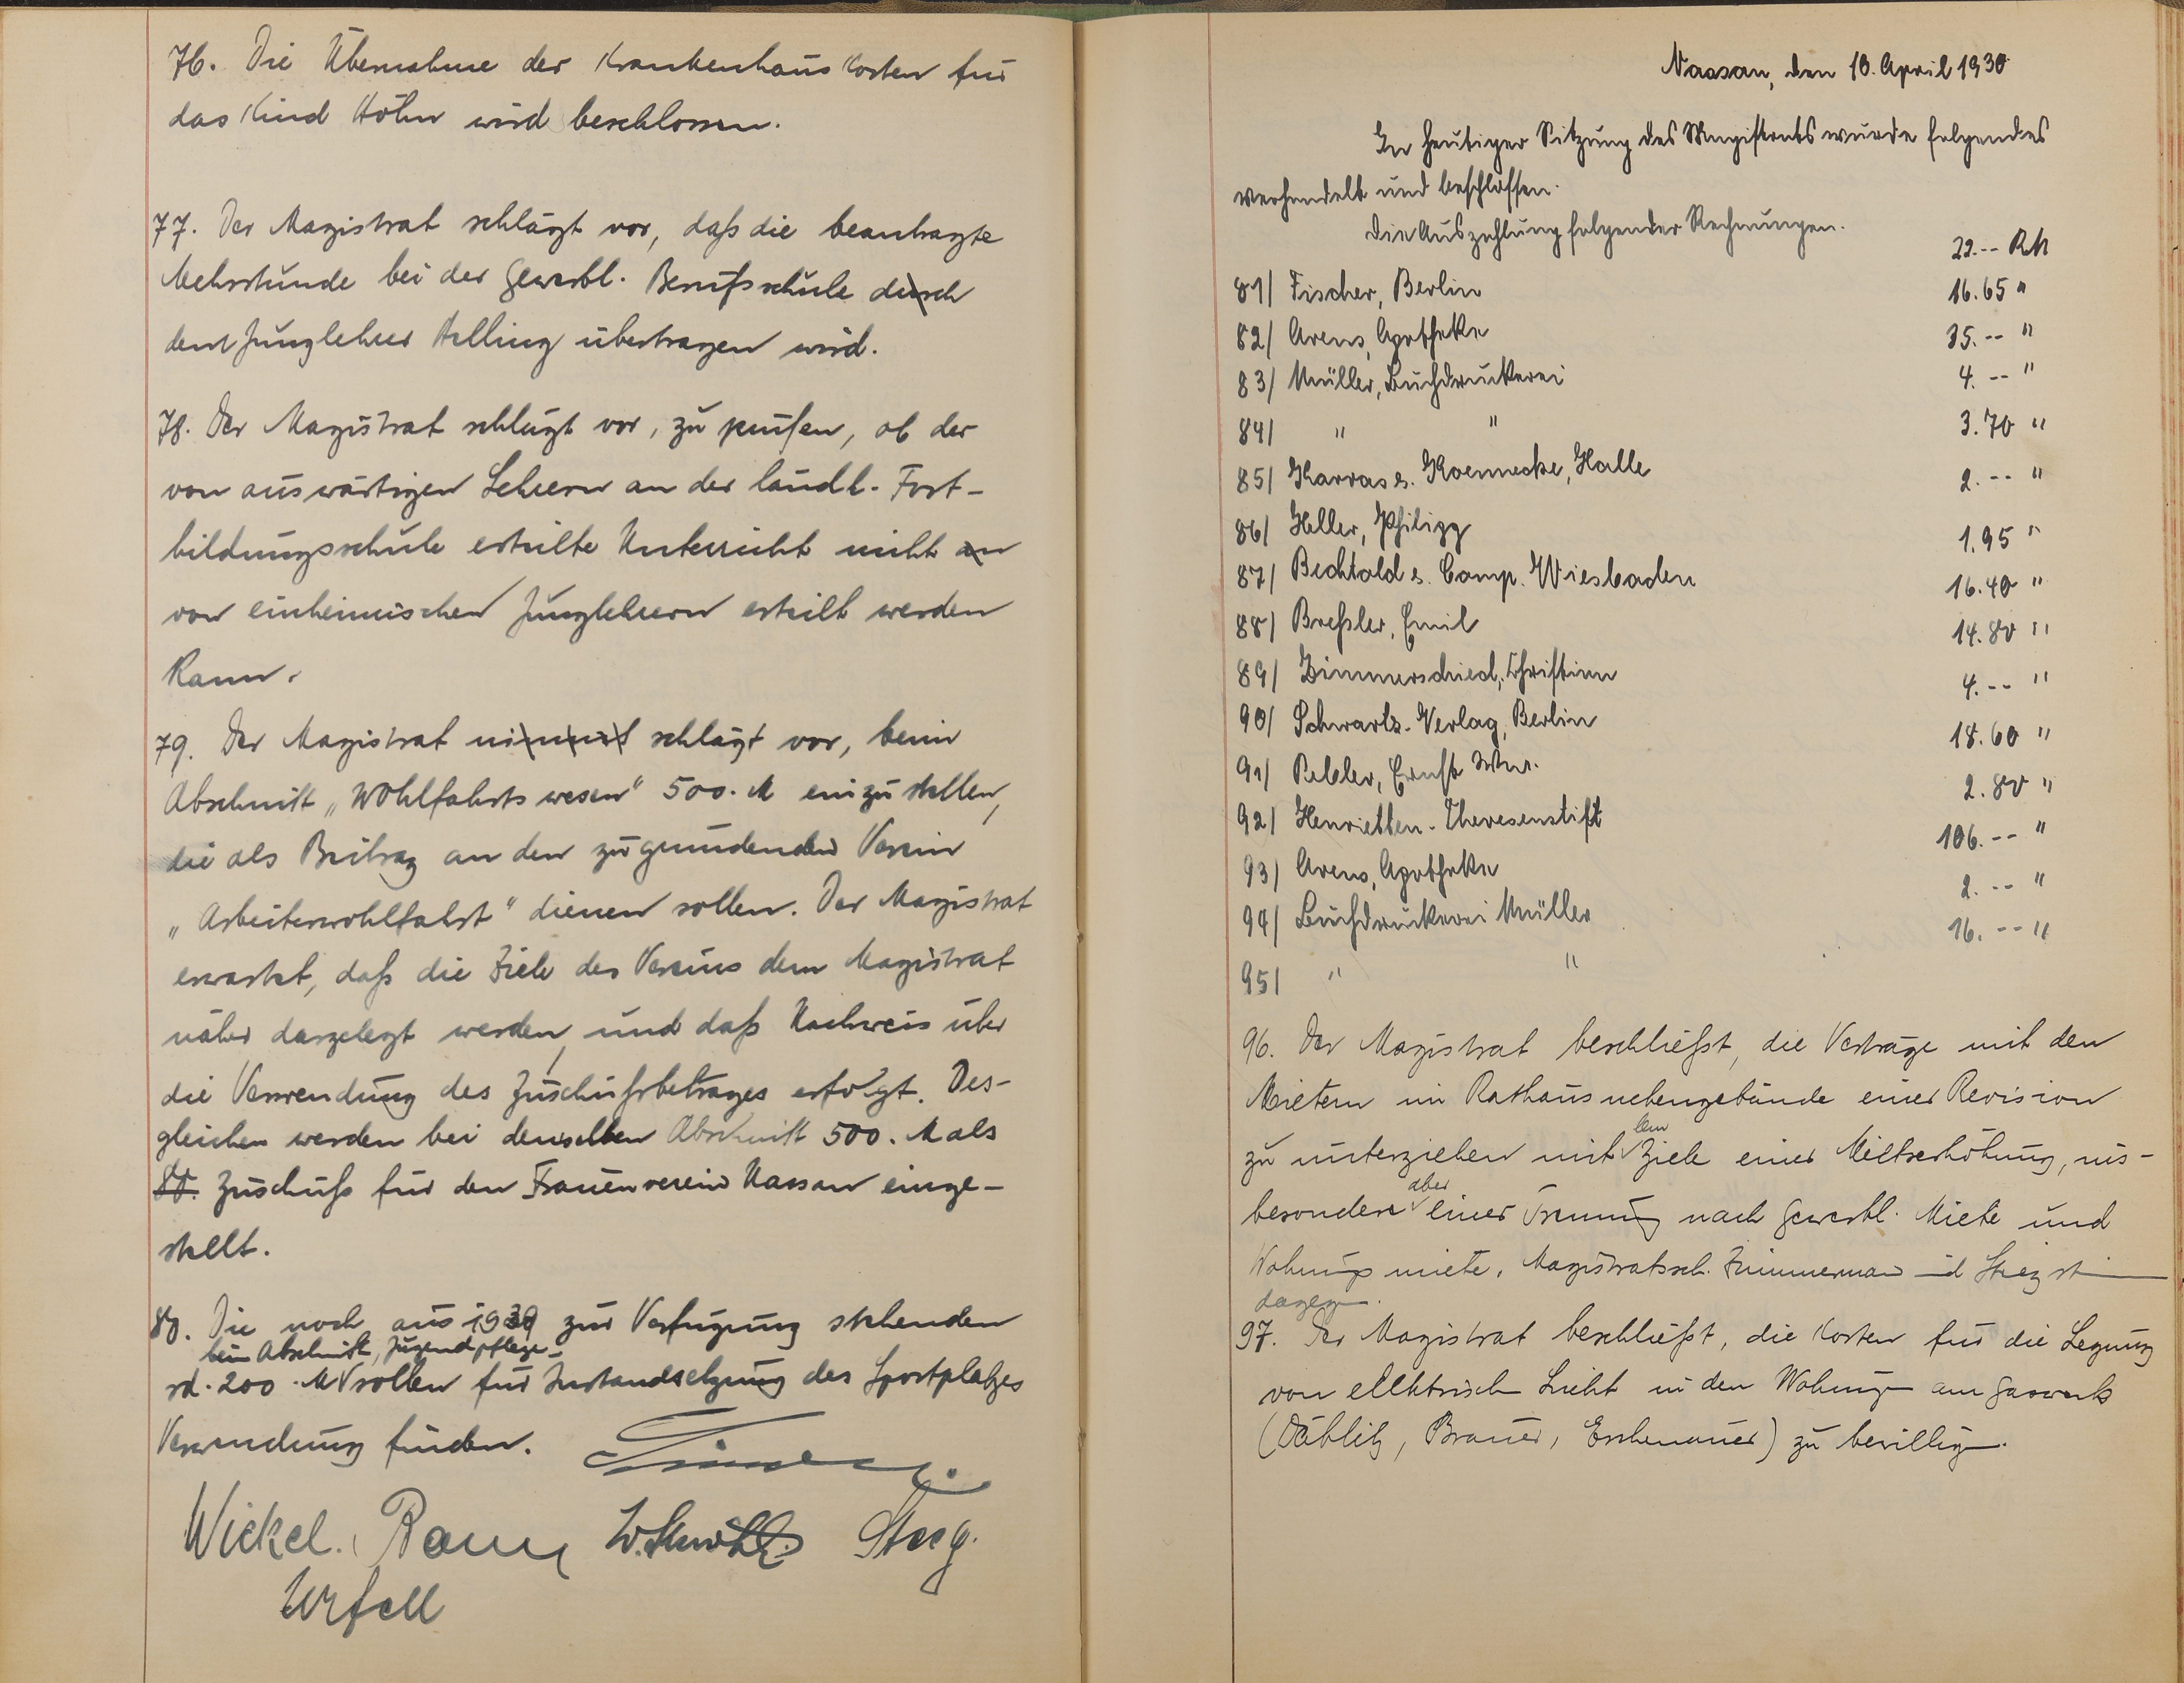 76. Die Übernahme der Krankenhauskosten für
das Kind Höhn wird beschlossen.
77. Der Magistrat schlägt vor, daß die beantragte
Mehrstunde bei der gewerbl. Berufsschule durch
dem Junglehrer Helling übertragen wird.
78. Der Magistrat schlägt vor, zu prüfen, ob der
von auswärtigen Lehrern an der ländl. Fort-
bildungsschule erteilte Unterricht nicht an
von einheimischen Junglehrern erteilt werden
kann.
79. Der Magistrat nimmt schlägt vor, beim
Abschnitt „Wohlfahrtswesen" 500. M einzustellen,
die als Beitrag an den zu gründenden Verein
„Arbeiterwohlfahrt" dienen sollen. Der Magistrat
erwartet, daß die Ziele des Vereins dem Magistrat
näher dargelegt werden, und daß Nachweis über
die Verwendung des Zuschußbetrages erfolgt. Des-
gleichen werden bei demselben Abschnitt 500. M als
80. Zuschuß für den Frauenverein Nassau einge-
stellt.
80. Die noch aus 1929 zur Verfügung stehenden
beim Abschnitt, Jugendpflege-
rd. 200. M sollen für Instandsetzung des Sportplatzes
Verwendung finden.
Wickel. W. Steeg.
Unfell
Nassau, den 10. April 1930
In heutiger Sitzung des Magistrats wurde folgendes
verhandelt und beschlossen.
Die Auszahlung folgender Rechnungen.
81/ Fischer, Berlin 22.-- RM
82/ Arens, Apotheke 16.65 "
83/ Müller, Buchdruckerei 35.-- "
84/ " " 4.-- "
85/ Karras u. Koennecke, Halle 3.70 "
86/ Heller, Philipp 2.-- "
87/ Bechtold u. Comp. Wiesbaden 1.95 "
88/ Breßler, Emil 16.40 "
89/ Zimmerschied, Christian 14.80 "
90/ Schwartz-Verlag, Berlin 4.-- "
91/ Ernst Wwe. 18.60 "
92/ Henrietten-Theresenstift 2.80 "
93/ Arens, Apotheke 106.-- "
94/ Buchdruckerei Müller 2.-- "
95/ " " 16.-- "
96. Der Magistrat beschließt, die Verträge mit den
Mietern im Rathausnebengebäude einer Revision
zu unterziehen mit dem Ziele einer Mietserhöhung, ins-
besondere aber einer Trennung nach gewerbl. Miete und
Wohnungsmiete. Magistratssch. Zimmermann und Steeg stimmen
dagegen.
97. Der Magistrat beschließt, die Kosten für die Legung
von elektrisch Licht in den Wohnungen am Gaswerk
(Däblitz, Brauer, Eschenauer) zu bewilligen.